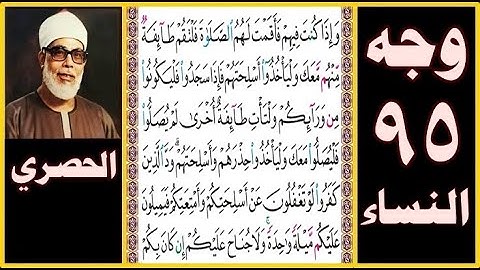 وجه
٩٥
النساء
وَإِذَا كُنتَ فِيهِمْ فَأَقَمْتَ لَهُمُ الصَّلَوٰةَ فَلْتَقُمْ طَآئِفَةٌ
مِّنْهُم مَّعَكَ وَلْيَأْخُذُوٓا۟ أَسْلِحَتَهُمْ فَإِذَا سَجَدُوا۟ فَلْيَكُونُوا۟
مِن وَرَآئِكُمْ وَلْتَأْتِ طَآئِفَةٌ أُخْرَىٰ لَمْ يُصَلُّوا۟
فَلْيُصَلُّوا۟ مَعَكَ وَلْيَأْخُذُوا۟ حِذْرَهُمْ وَأَسْلِحَتَهُمْ ۗ وَدَّ الَّذِينَ
كَفَرُوا۟ لَوْ تَغْفُلُونَ عَنْ أَسْلِحَتِكُمْ وَأَمْتِعَتِكُمْ فَيَمِيلُونَ
عَلَيْكُم مَّيْلَةً وَٰحِدَةً ۚ وَلَا جُنَاحَ عَلَيْكُمْ إِن كَانَ بِكُمْ
الحصري